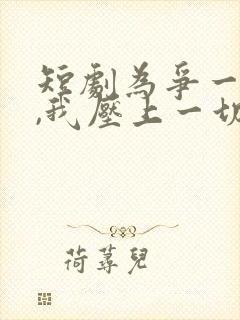 短劇為爭一
,我壓上一切
荷蕁兒